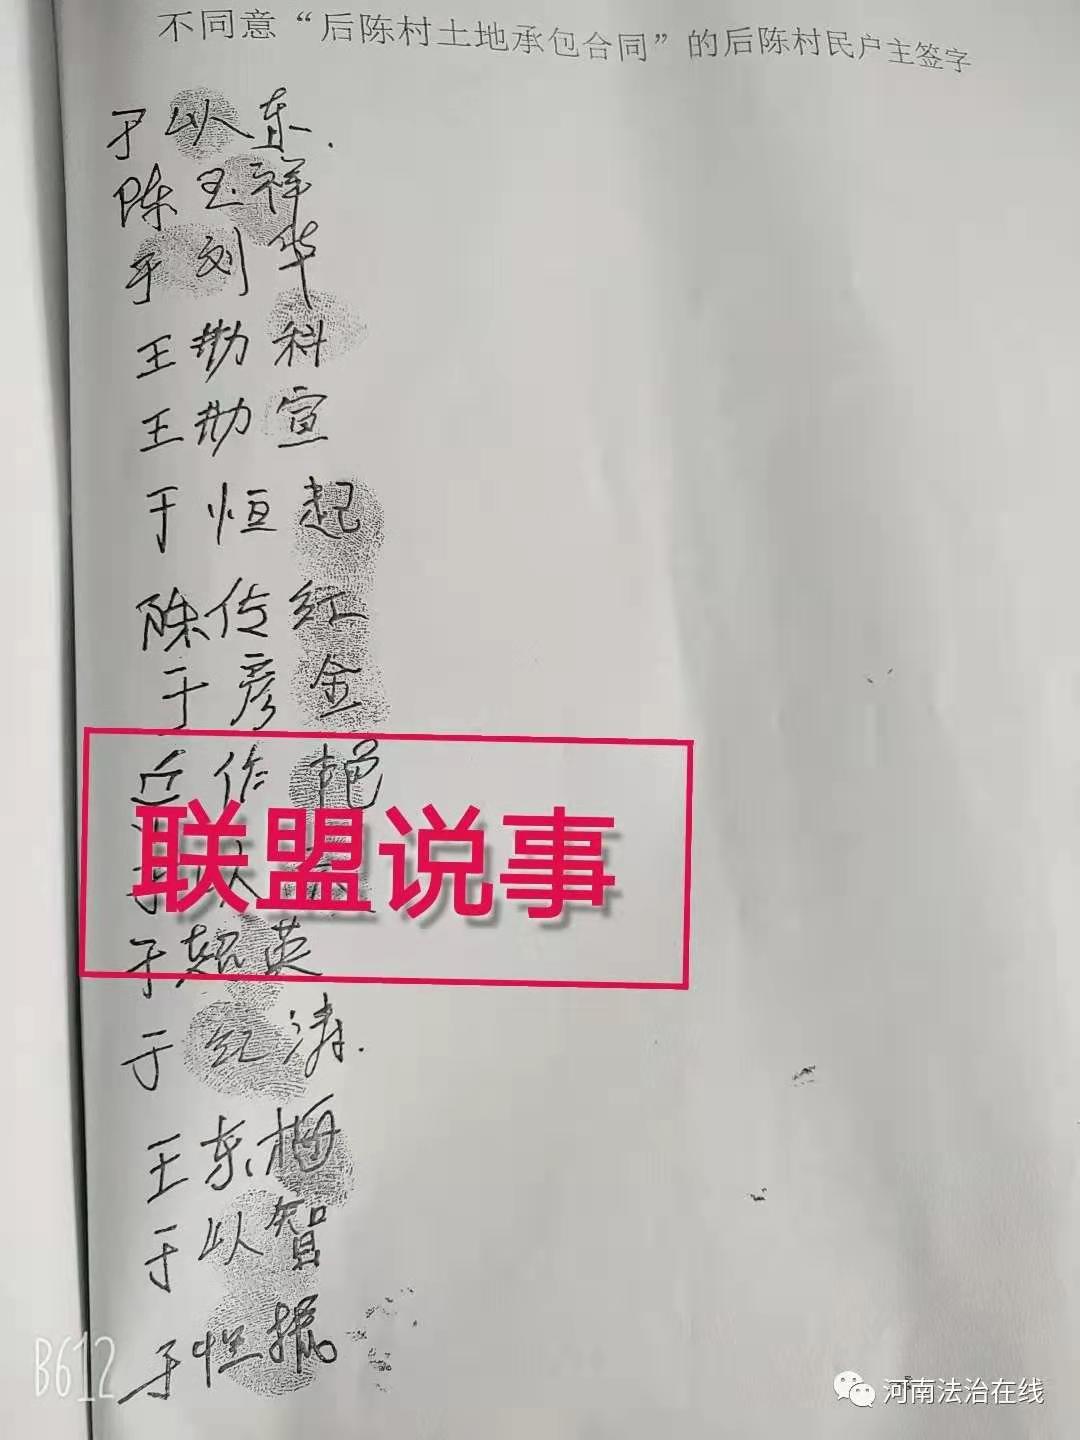 不同意“后陈村土地承包合同”的后陈村民户主签字
于以东.
陈玉祥
于刘华
王勘科
王勘宣
于恒起
陈传红
于彦金
联盟说事
于超英
于纪涛.
王东梅
于以智
于恒
B612
河南法治在线